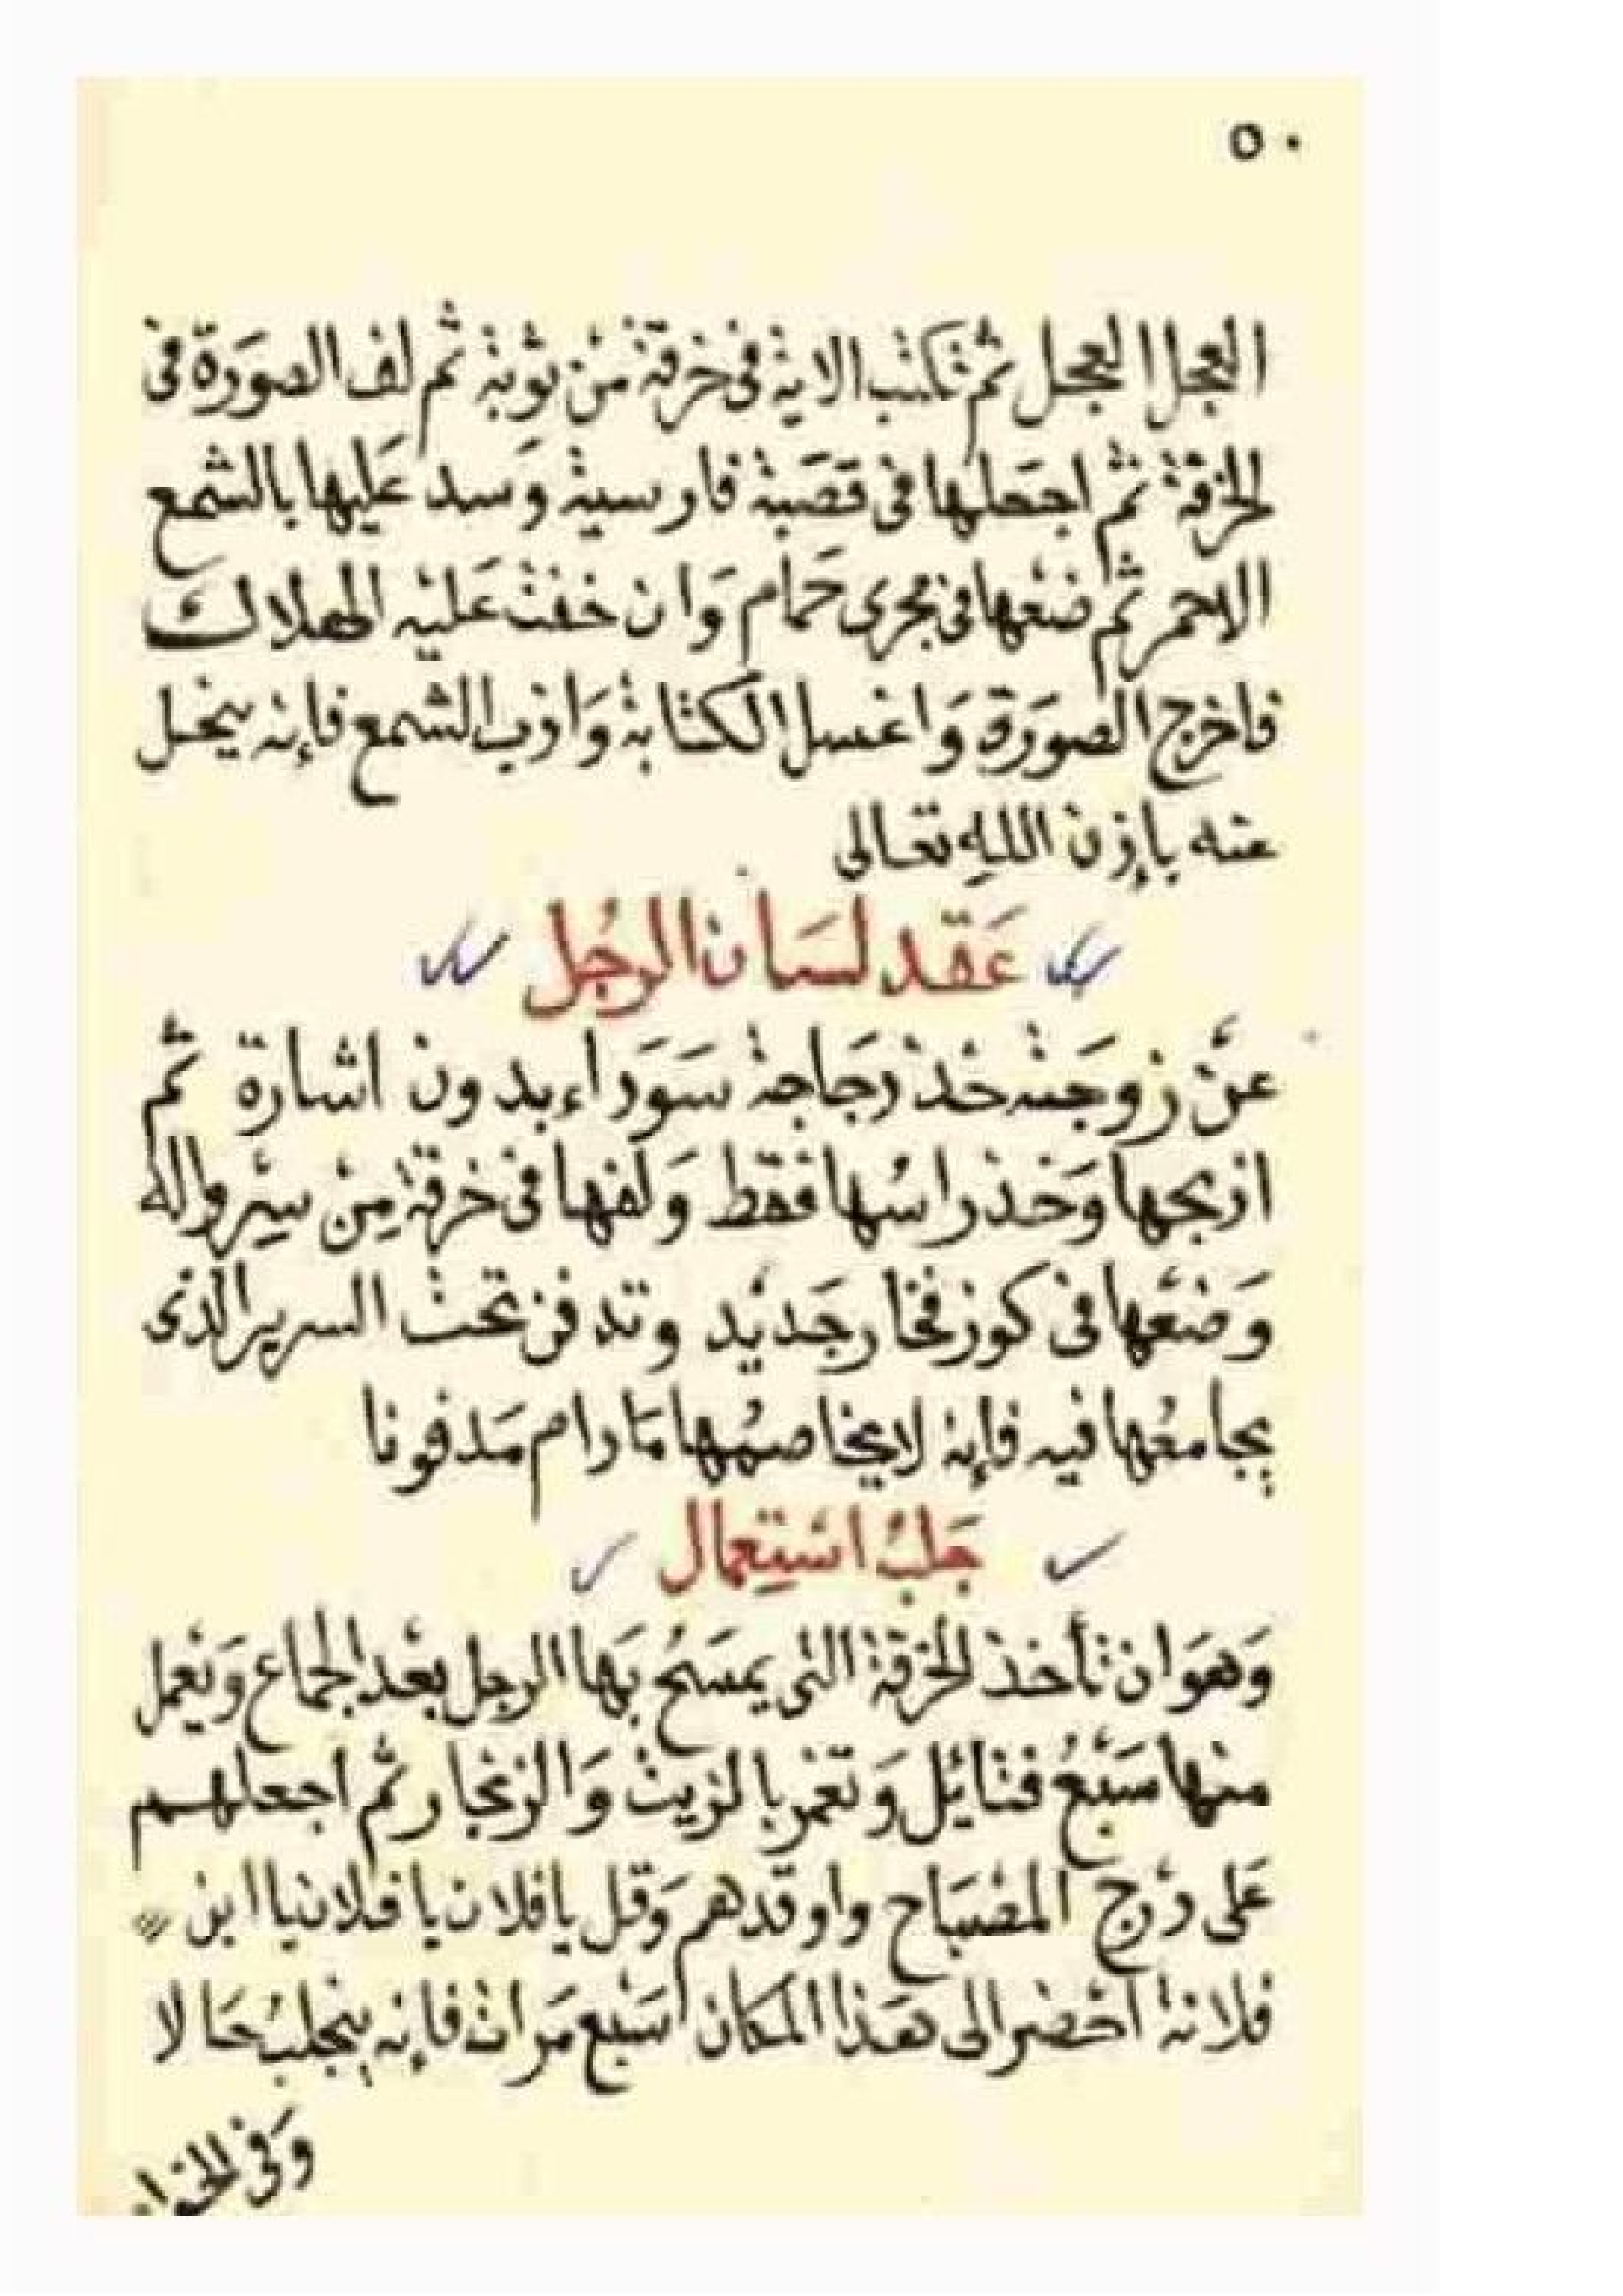 ٥٠
العجل العجل ثم تكتب الاية فى خرقة من ثوبة ثم لف الصورة فى
الخرقة ثم اجعلها فى قصبة فارسية وسد عليها بالشمع
الاحمر ثم ضعها فى مجرى حمام وان خفت عليه الهلاك
فاخرج الصورة واغسل الكتابة واذب الشمع فإنه ينحل
عنه بإذن الله تعالى
عقد لسان الرجل
عن زوجته خذ دجاجة سوداء بدون اشارة ثم
اذبحها وخذ راسها فقط ولفها فى خرقة من سرواله
وضعها فى كوز فخار جديد وتدفن تحت السرير الذى
يجامعها فيه فإنه لا يخاصمها مادام مدفونا
جلب استعمال
وهو ان تأخذ الخرقة التى يمسح بها الرجل بعد الجماع وتعمل
منها سبع فتائل وتغمر بالزيت والزنجار ثم اجعلهم
على درج المصباح واوقدهم وقل يا فلان يا فلان يا ابن
فلانة احضر الى هذا المكان سبع مرات فإنه ينجلب حالا
وفى